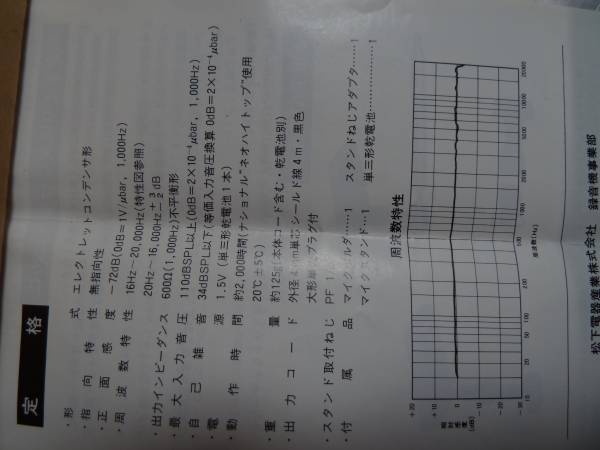 定格
・形式 エレクトレットコンデンサ形
・指向特性 無指向性
・正面感度 −72dB(0dB=1V/μbar, 1,000Hz)
・周波数特性 16Hz−20,000Hz(特性図参照)
20Hz−16,000Hz ±3 2 dB
・出力インピーダンス 600Ω(1,000Hz)不平衡形
・最大入力音圧 110dBSPL以上(0dB=2×10⁻⁴μbar, 1,000Hz)
・自己雑音 34dBSPL以下(等価入力音圧換算 0dB=2×10⁻⁴μbar)
・電源 1.5V(単三形乾電池1本)
・動作時間 約2,000時間(ナショナル"ネオハイトップ"使用
20℃±5℃)
・重量 約125g(本体コード含む・乾電池別)
・出力コード 外径 単芯シールド線4m・黒色
大形 プラグ付
・スタンド取付ねじ PF
・付属品 マイクホルダ……1 スタンドねじアダプタ……1
マイクスタンド…1 単三形乾電池………………1
周波数特性
+20
+10
0
−10
−20
−30
相対感度(dB)
10 20 50 100 200 500 1000 2000 5000 10000 20000
周波数(Hz)
松下電器産業株式会社 録音機事業部